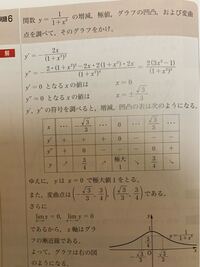 例題6 関数 y=1/(1+x²) の増減，極値，グラフの凹凸，および変曲
点を調べて，そのグラフをかけ。
解
y'=-2x/(1+x²)²
y''=-(2・(1+x²)²-2x・2(1+x²)・2x)/(1+x²)⁴=2(3x²-1)/(1+x²)³
y'=0 となる x の値は x=0
y''=0 となる x の値は x=±√3/3
y', y'' の符号を調べると，増減，凹凸の表は次のようになる。
x … -√3/3 … 0 … √3/3 …
y' + + + 0 - - -
y'' + 0 - - - 0 +
y 3/4 極大 1 3/4
ゆえに，y は x=0 で極大値1をとる。
また，変曲点は (-√3/3, 3/4), (√3/3, 3/4) である。
さらに
lim y=0, lim y=0
であるから，x 軸はグラ
フの漸近線である。
よって，グラフは右の図
のようになる。
y 1 3/4 y=1/(1+x²)
-√3/3 O √3/3 x